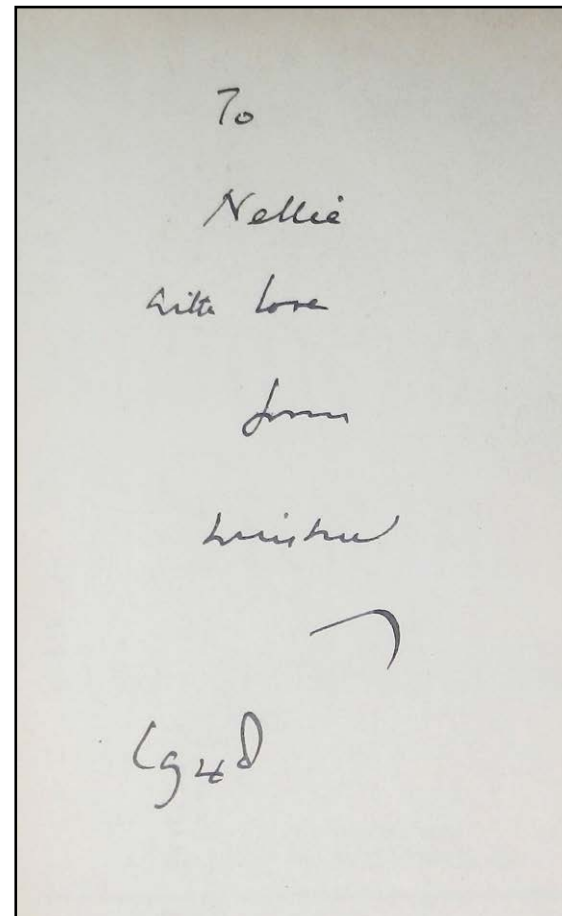 To
Nellie
with love
from
Winston
1948